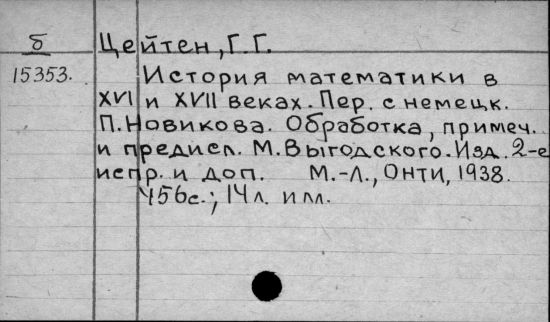 б Цейтен, Г. Г.
15353. История математики в
XVI и XVII веках. Пер. с немецк.
П. Новикова. Обработка, примеч.
и предисл. М. Выгодского. Изд. 2-е
испр. и доп. М.-Л., ОНТИ, 1938.
456с.; 14л. илл.